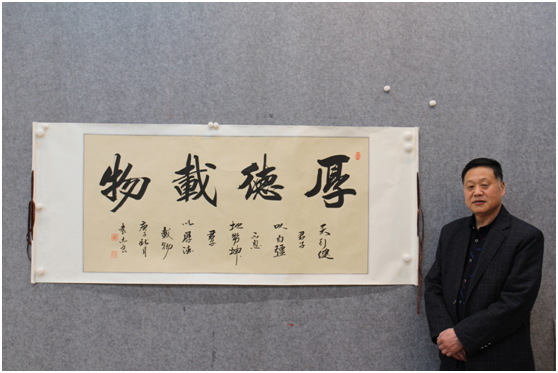 厚德載物
天行健
君子
以自彊
不息
地势坤
君子
以厚德
載物
庚子秋月